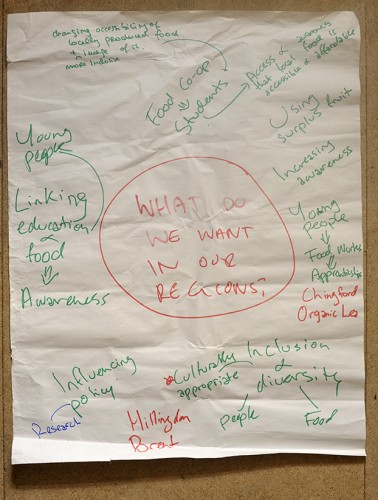 changing accessibility of
locally produced food
+ image of it.
more inclusive
Food Co-op
Students
Access & awareness
that local food is
accessible & affordable
Using
surplus fruit
Increasing
awareness
Young
people
Linking
education
& food
Awareness
WHAT DO
WE WANT
IN OUR
REGIONS?
Young
People
Food Works
Apprentiships
Chingford
Organic Lea
Influencing
policy
Research
Culturally
appropriate
Inclusion
&
diversity
People
Food
Hillingdon